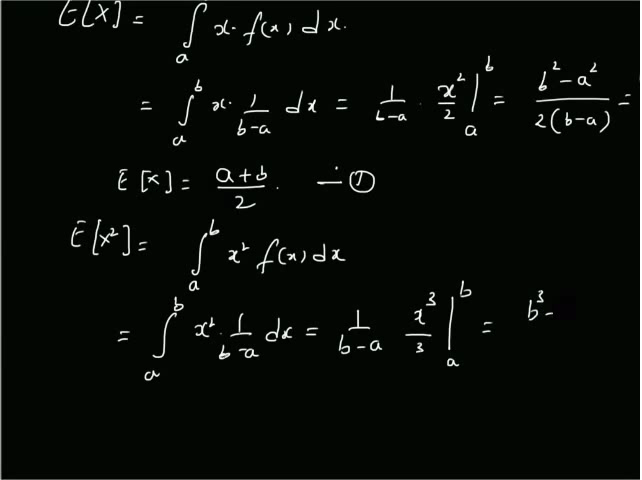 E[X] = ∫ₐ x · f(x) dx.
= ∫ₐᵇ x · 1/(b-a) dx = 1/(b-a) · x²/2 |ₐᵇ = (b² - a²)/(2(b-a)) =
E[X] = (a+b)/2. — ①
E[X²] = ∫ₐᵇ x² f(x) dx
= ∫ₐᵇ x² · 1/(b-a) dx = 1/(b-a) x³/3 |ₐᵇ = b³ -